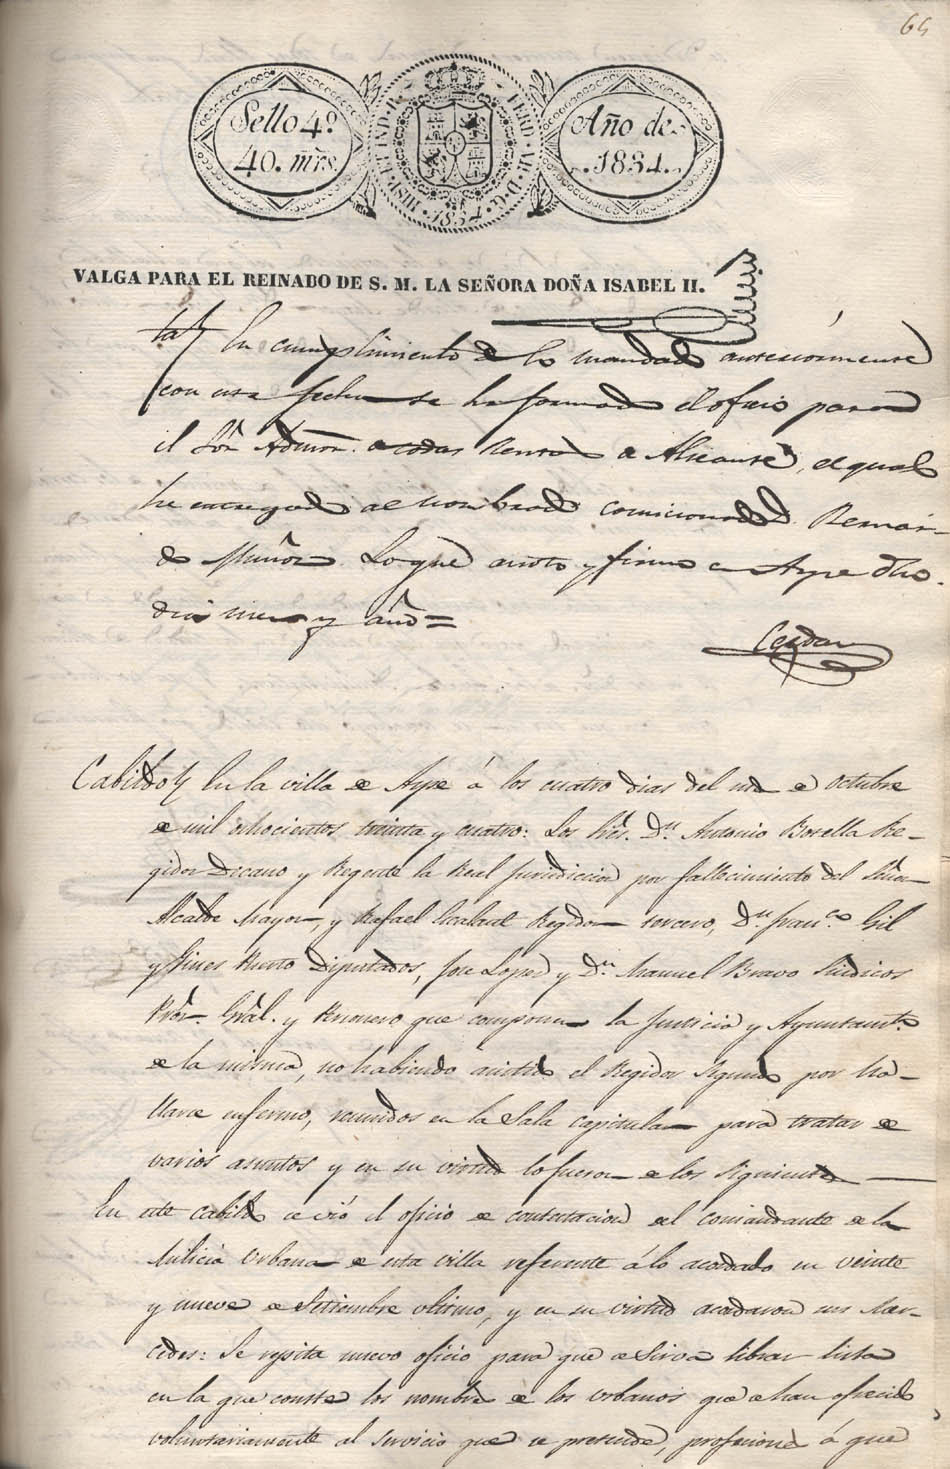 64
Sello 4º
40. mrs
HISP. ET IND. R. FERD. VII. D. G. 1834
Año de
1834.
VALGA PARA EL REINADO DE S. M. LA SEÑORA DOÑA ISABEL II.
En cumplimiento de lo mandado anteriormente
con esta fecha se ha formado el oficio para
el Sor. Admor. de todas Rentas de Alicante, el qual
he entregado al nombrado comisionado D. Reman-
do Muñoz. Lo que anoto y firmo en Aspe dho.
dia mes y año=
Cerdan
Cabildo En la villa de Aspe á los cuatro dias del mes de Octubre
de mil ochocientos treinta y cuatro: Los Sres. Dn. Antonio Botella Re-
gidor Decano y Regente la Real Jurisdiccion por fallecimiento del Señor
Alcalde Mayor, y Rafael Regidor tercero, Dn. Franco. Gil
y Gines Diputados, Jose Lopez y Dn. Manuel Bravo Sindicos
Pror. Gral. y Personero que componen la Justicia y Ayuntamto.
de la misma, no habiendo asistido el Regidor Segundo por ha-
llarse enfermo, reunidos en la Sala capitular para tratar de
varios asuntos y en su virtud lo fueron de los siguientes
En este cabildo se vió el oficio de contestacion del comandante de la
Milicia Urbana de esta villa referente á lo acordado en veinte
y nueve de Setiembre ultimo, y en su virtud acordaron sus Mer-
cedes: Se repita nuevo oficio para que se sirva librar lista
en la que conste los nombres de los urbanos que se han ofrecido
voluntariamente al servicio que se pretende, á que